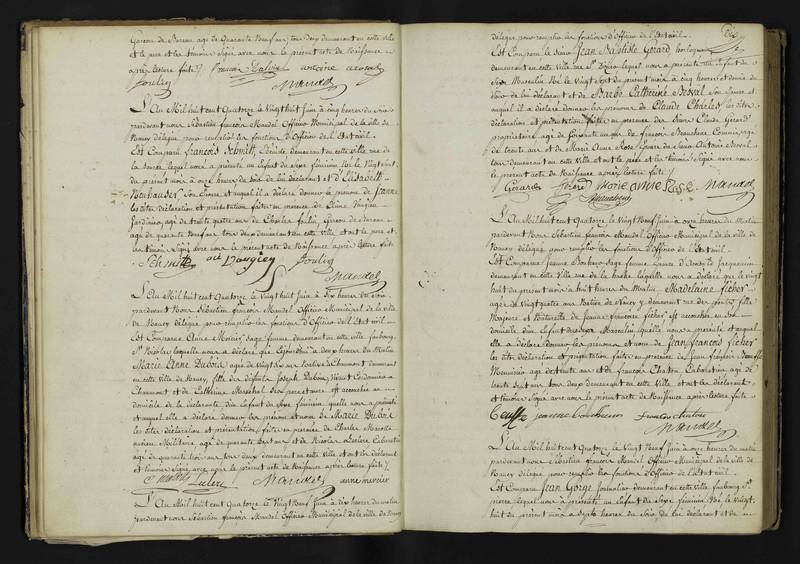 Garçon de Bureau agé de Quarante Neuf ans tous deux demeurant en cette ville
et le pere et les témoins Signé avec nous le présent acte de Naissance
après lecture faite /.
Poulin
Mandel
L'An Mil huit cent Quatorze le Vingt huit Juin à cinq heures du Soir
pardevant nous Sébastien françois Mandel Officier Municipal de la ville de
Nancy délégué pour remplir les fonctions d'Officier de l'Etat civil
Est Comparu françois Schmitt, demeurant en cette ville rue de
la laquelle nous a présenté un Enfant du Sexe féminin Né le Vingt Sept
du présent mois à onze heures du Soir de lui déclarant et d'Elisabeth
Neuhauser Son Epouse et auquel il a déclaré donner le prénom de Jeanne
les dites déclaration et présentation faites en présence de
Jardinier agé de trente quatre ans de Charles Poulin, Garçon de Bureau
agé de quarante Neuf ans tous deux demeurant en cette ville et ont le pere et
les témoins Signé avec nous le présent acte de Naissance après lecture faite
Schmitt Poulin
Mandel
L'An Mil huit cent Quatorze le Vingt huit Juin à Six heures du Soir
pardevant Nous Sébastien françois Mandel Officier Municipal de la ville
de Nancy délégué pour remplir les fonctions d'Officier de l'Etat civil
Est Comparue Anne Mercier Sage femme demeurant en cette ville faubourg
St Nicolas laquelle nous a déclaré que cejourd'hui à deux heures du Matin
Marie Anne Dubois agée de Vingt Six ans Native à Chaumont demeurant
en cette ville de Nancy, fille des défunts Joseph Dubois Vivant Cordonnier à
Chaumont et de Catherine Maréchal Ses pere et mere est accouchée au
domicile de la déclarante d'un Enfant du Sexe féminin qu'elle nous a présenté
et auquel elle a déclaré donner les prénom et nom de Marie Dubois
les dites déclaration et présentation faites en présence de Charles
ancien Militaire agé de quarante Sept ans et de Nicolas Leclerc Cabaretier
agé de quarante huit ans tous deux demeurant en cette ville et ont les déclarant
et témoins Signé avec nous le présent acte de Naissance après lecture faite /.
Leclerc Mandel anne mercier
L'An Mil huit cent Quatorze le Vingt Neuf Juin à dix heures du matin
pardevant nous Sébastien françois Mandel Officier Municipal de la ville de Nancy
délégué pour remplir les fonctions d'Officier de l'Etat civil.
Est Comparu le Sieur Jean Baptiste Gérard horloger
demeurant en cette ville rue St Dizier lequel nous a présenté un Enfant du
Sexe Masculin Né le Vingt Sept du présent mois à cinq heures et demie du
Soir de lui déclarant et de Barbe Catherine Son Epouse et
auquel il a déclaré donner les prénoms de Claude Charles les dites
déclaration et présentation faites en présence des Sieurs Claude Gérard
propriétaire agé de Soixante ans de françois
de trente ans et de Marie Anne Rose Epouse du Sieur Antoine
tous demeurant en cette Ville et ont le pere et les témoins Signé avec nous
le présent acte de Naissance après lecture faite /.
Gérard Gérard Mandel
L'An Mil huit cent Quatorze le Vingt Neuf Juin à onze heures du Matin
pardevant Nous Sébastien françois Mandel Officier Municipal de la ville de
Nancy délégué pour remplir les fonctions d'Officier de l'Etat civil.
Est Comparue Jeanne Sage femme Epouse d'
demeurant en cette Ville rue de la laquelle nous a déclaré que le vingt
huit du présent mois à huit heures du Matin Madelaine ficher
agée de Vingt quatre ans Native de Nancy y demeurant rue des fille
Majeure et Naturelle de Jeanne françoise ficher est accouchée en Son
domicile d'un Enfant du Sexe Masculin qu'elle nous a présenté et auquel
elle a déclaré donner les prénoms et nom de Jean françois ficher
les dites déclaration et présentation faites en présence de
Menuisier agé de trente ans et de françois agé de
ans tous deux demeurant en cette Ville et ont les déclarant
et témoins Signé avec nous le présent acte de Naissance après lecture faite
Mandel
L'An Mil huit cent Quatorze le Vingt Neuf Juin à onze heures du matin
pardevant nous Sébastien françois Mandel Officier Municipal de la ville de
Nancy délégué pour remplir les fonctions d'Officier de l'Etat civil.
Est Comparu Jean George Journalier demeurant en cette Ville faubourg St
pierre lequel nous a présenté un Enfant du Sexe féminin Né le Vingt
huit du présent mois à Sept heures du Soir de lui déclarant et de